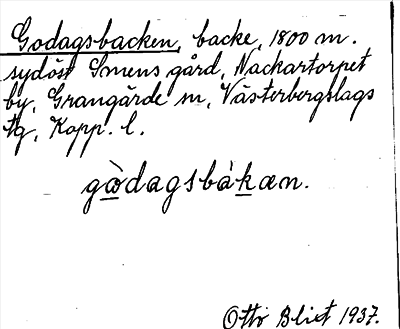 Godagsbacken, backe, 1800 m.
sydöst Smens gård, Nackartorpet
by, Grangärde sn, Västerbergslags
tg, Kopp. l.
gòdagsbàkæn.
Otto Blixt 1937.